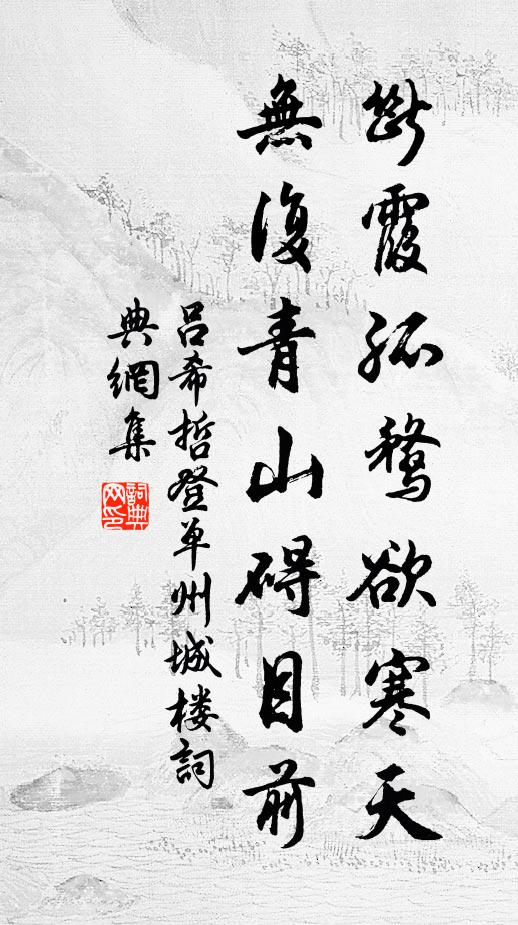 断霞孤鹜欲寒天
無復青山碍目前
吕希哲登单州城楼詞
典網集
詞典
网印